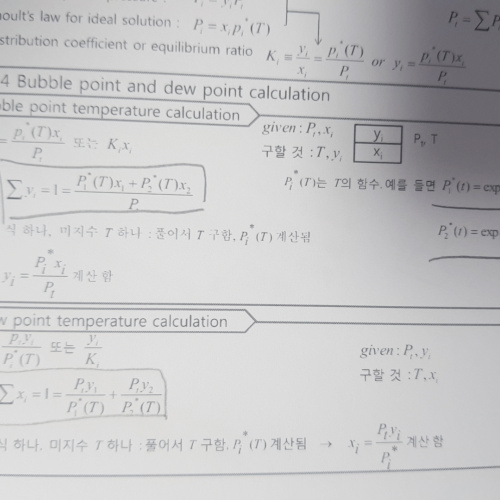 oult's law for ideal solution : P_i = x_i p_i^*(T)
P_t = ∑ P
stribution coefficient or equilibrium ratio K_i = y_i/x_i = p_i^*(T)/P_t or y_i = P_i^*(T)x_i/P_t
4 Bubble point and dew point calculation
ble point temperature calculation
given : P_t, x_i
= p_i^*(T)x_i/P_t 또는 K_i x_i
구할 것 : T, y_i
y_i
x_i
P_t, T
∑ y_i = 1 = P_1^*(T)x_1 + P_2^*(T)x_2 / P
P_i^*(T)는 T의 함수. 예를 들면 P_1^*(t) = exp
식 하나, 미지수 T 하나 : 풀어서 T 구함, P_i^*(T) 계산됨
P_2^*(t) = exp
y_i = P_i^* x_i / P_t 계산 함
w point temperature calculation
P_t y_i / P_i^*(T) 또는 y_i / K_i
given : P_t, y_i
구할 것 : T, x_i
∑ x_i = 1 = P_t y_1 / P_1^*(T) + P_t y_2 / P_2^*(T)
식 하나, 미지수 T 하나 : 풀어서 T 구함, P_i^*(T) 계산됨 → x_i = P_t y_i / P_i^* 계산 함